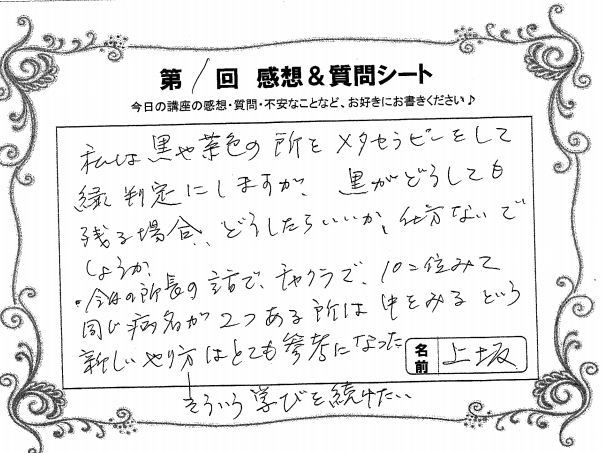 第1回 感想&質問シート
今日の講座の感想・質問・不安なことなど、お好きにお書きください♪
私は黒や茶色の所をメタセラピーをして
緑判定にしますが、黒がどうしても
残る場合、どうしたらいいか、仕方ないで
しょうか。
・今日の所長の話で、チャクラで、10こ位みて
同じ病名が2つある所は中をみるという
新しいやり方はとても参考になった
そういう学びを続けたい
名前 上坂